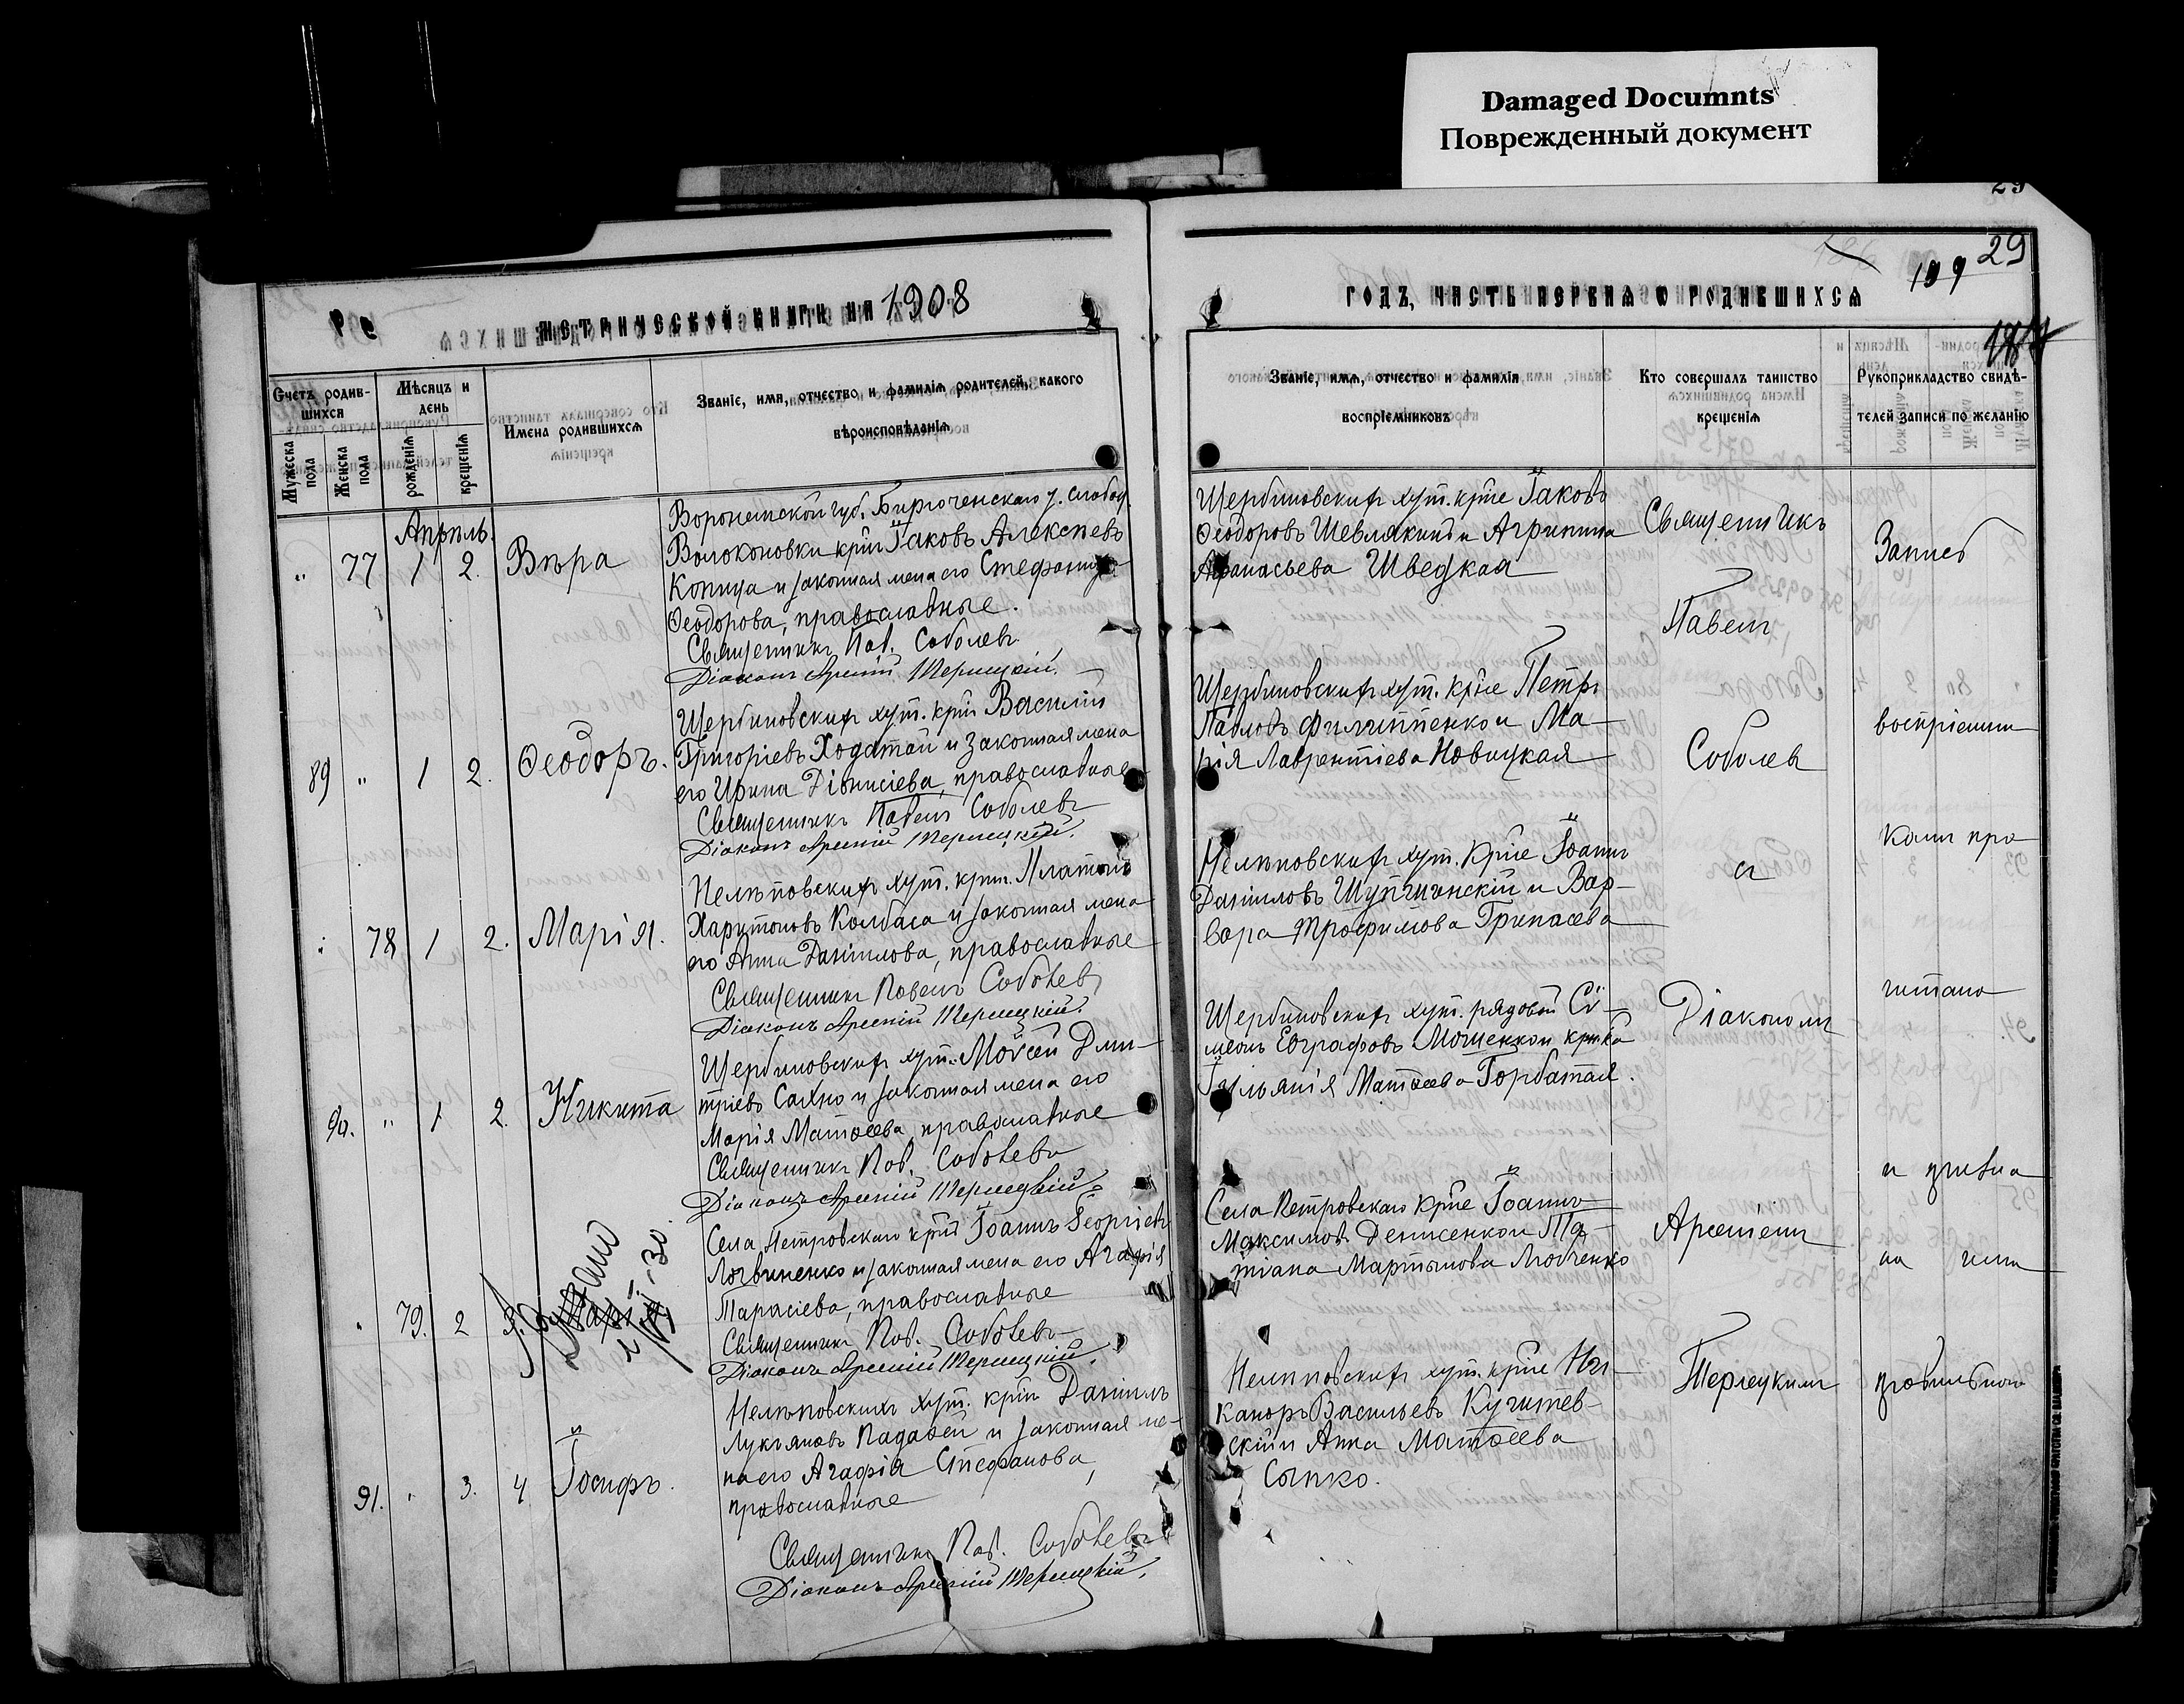 Damaged Documnts
Поврежденный документ
29
29
109
МЕТРИЧЕСКОЙ КНИГИ НА 1908
ГОДЪ, ЧАСТЬ ПЕРВАЯ О РОДИВШИХСЯ
Счетъ родив-
шихся
Мужеска
пола
Женска
пола
Мѣсяцъ и
день
рожденія
крещенія
Имена родившихся
Званіе, имя, отчество и фамилія родителей, какого
вѣроисповѣданія
Званіе, имя, отчество и фамилія
воспріемниковъ
Кто совершалъ таинство
крещенія
Рукоприкладство свидѣ-
телей записи по желанію
Апрѣль
" 77 1 2. Вѣра
Воронежской губ. Бирюченскаго у. слобод.
Волоконовки крнъ Іаковъ Алексѣевъ
Копица и законная жена его Стефанида
Ѳеодорова, православные.
Священникъ Пав. Соболевъ
Діаконъ Арсеній Терлецкій.
Щербиновскихъ хут. крне Іаковъ
Ѳеодоровъ Шевлякинъ и Агрипина
Аѳанасьева Шведкая
89 " 1 2. Ѳеодоръ.
Щербиновскихъ хут. крнъ Василій
Григоріевъ Ходатай и законная жена
его Ирина Діонисіева, православные
Священникъ Павелъ Соболевъ
Діаконъ Арсеній Терлецкій.
Щербиновскихъ хут. крне Петръ
Павловъ Филиппенко и Ма-
рія Лаврентіева Новицкая
" 78 1 2. Марія.
Нелѣповскихъ хут. крнъ. Платонъ
Харитоновъ Колбаса и законная жена
его Анна Даніилова, православные
Священникъ Павелъ Соболевъ
Діаконъ Арсеній Терлецкій.
Нелѣповскихъ хут. крне Іоаннъ
Даніиловъ и Вар-
вара Трофимова
90. " 1 2. Никита
Щербиновскихъ хут. Моѵсей Дми-
тріевъ Сахно и законная жена его
Марія Матѳеева, православные
Священникъ Пав. Соболевъ
Діаконъ Арсеній Терлецкій.
Щербиновскихъ хут. рядовой Сі-
меонъ Евграфовъ Мошенко и крнка
Іуліанія Матѳеева Горбатая.
" 79. 2 3.
Села Петровскаго крнъ Іоаннъ Георгіевъ
Логвиненко и законная жена его Агафія
Тарасіева, православные
Священникъ Пав. Соболевъ
Діаконъ Арсеній Терлецкій.
Села Петровскаго крне Іоаннъ
Максимовъ Денисенко и Та-
тіана Мартынова Любченко
91. " 3. 4 Іосифъ.
Нелѣповскихъ хут. крнъ Даніилъ
Лукьяновъ Падавей и законная же-
на его Агафія Стефанова,
православные
Священникъ Пав. Соболевъ
Діаконъ Арсеній Терлецкій.
Нелѣповскихъ хут. крне Ни-
каноръ Васильевъ
скій и Анна Матѳеева
Сынко.
Священникъ
Павелъ
Соболевъ
съ
Діакономъ
Арсеніемъ
Терлецкимъ
Запись
воспріемни
камъ про
читана
и призна
на ими
правильною